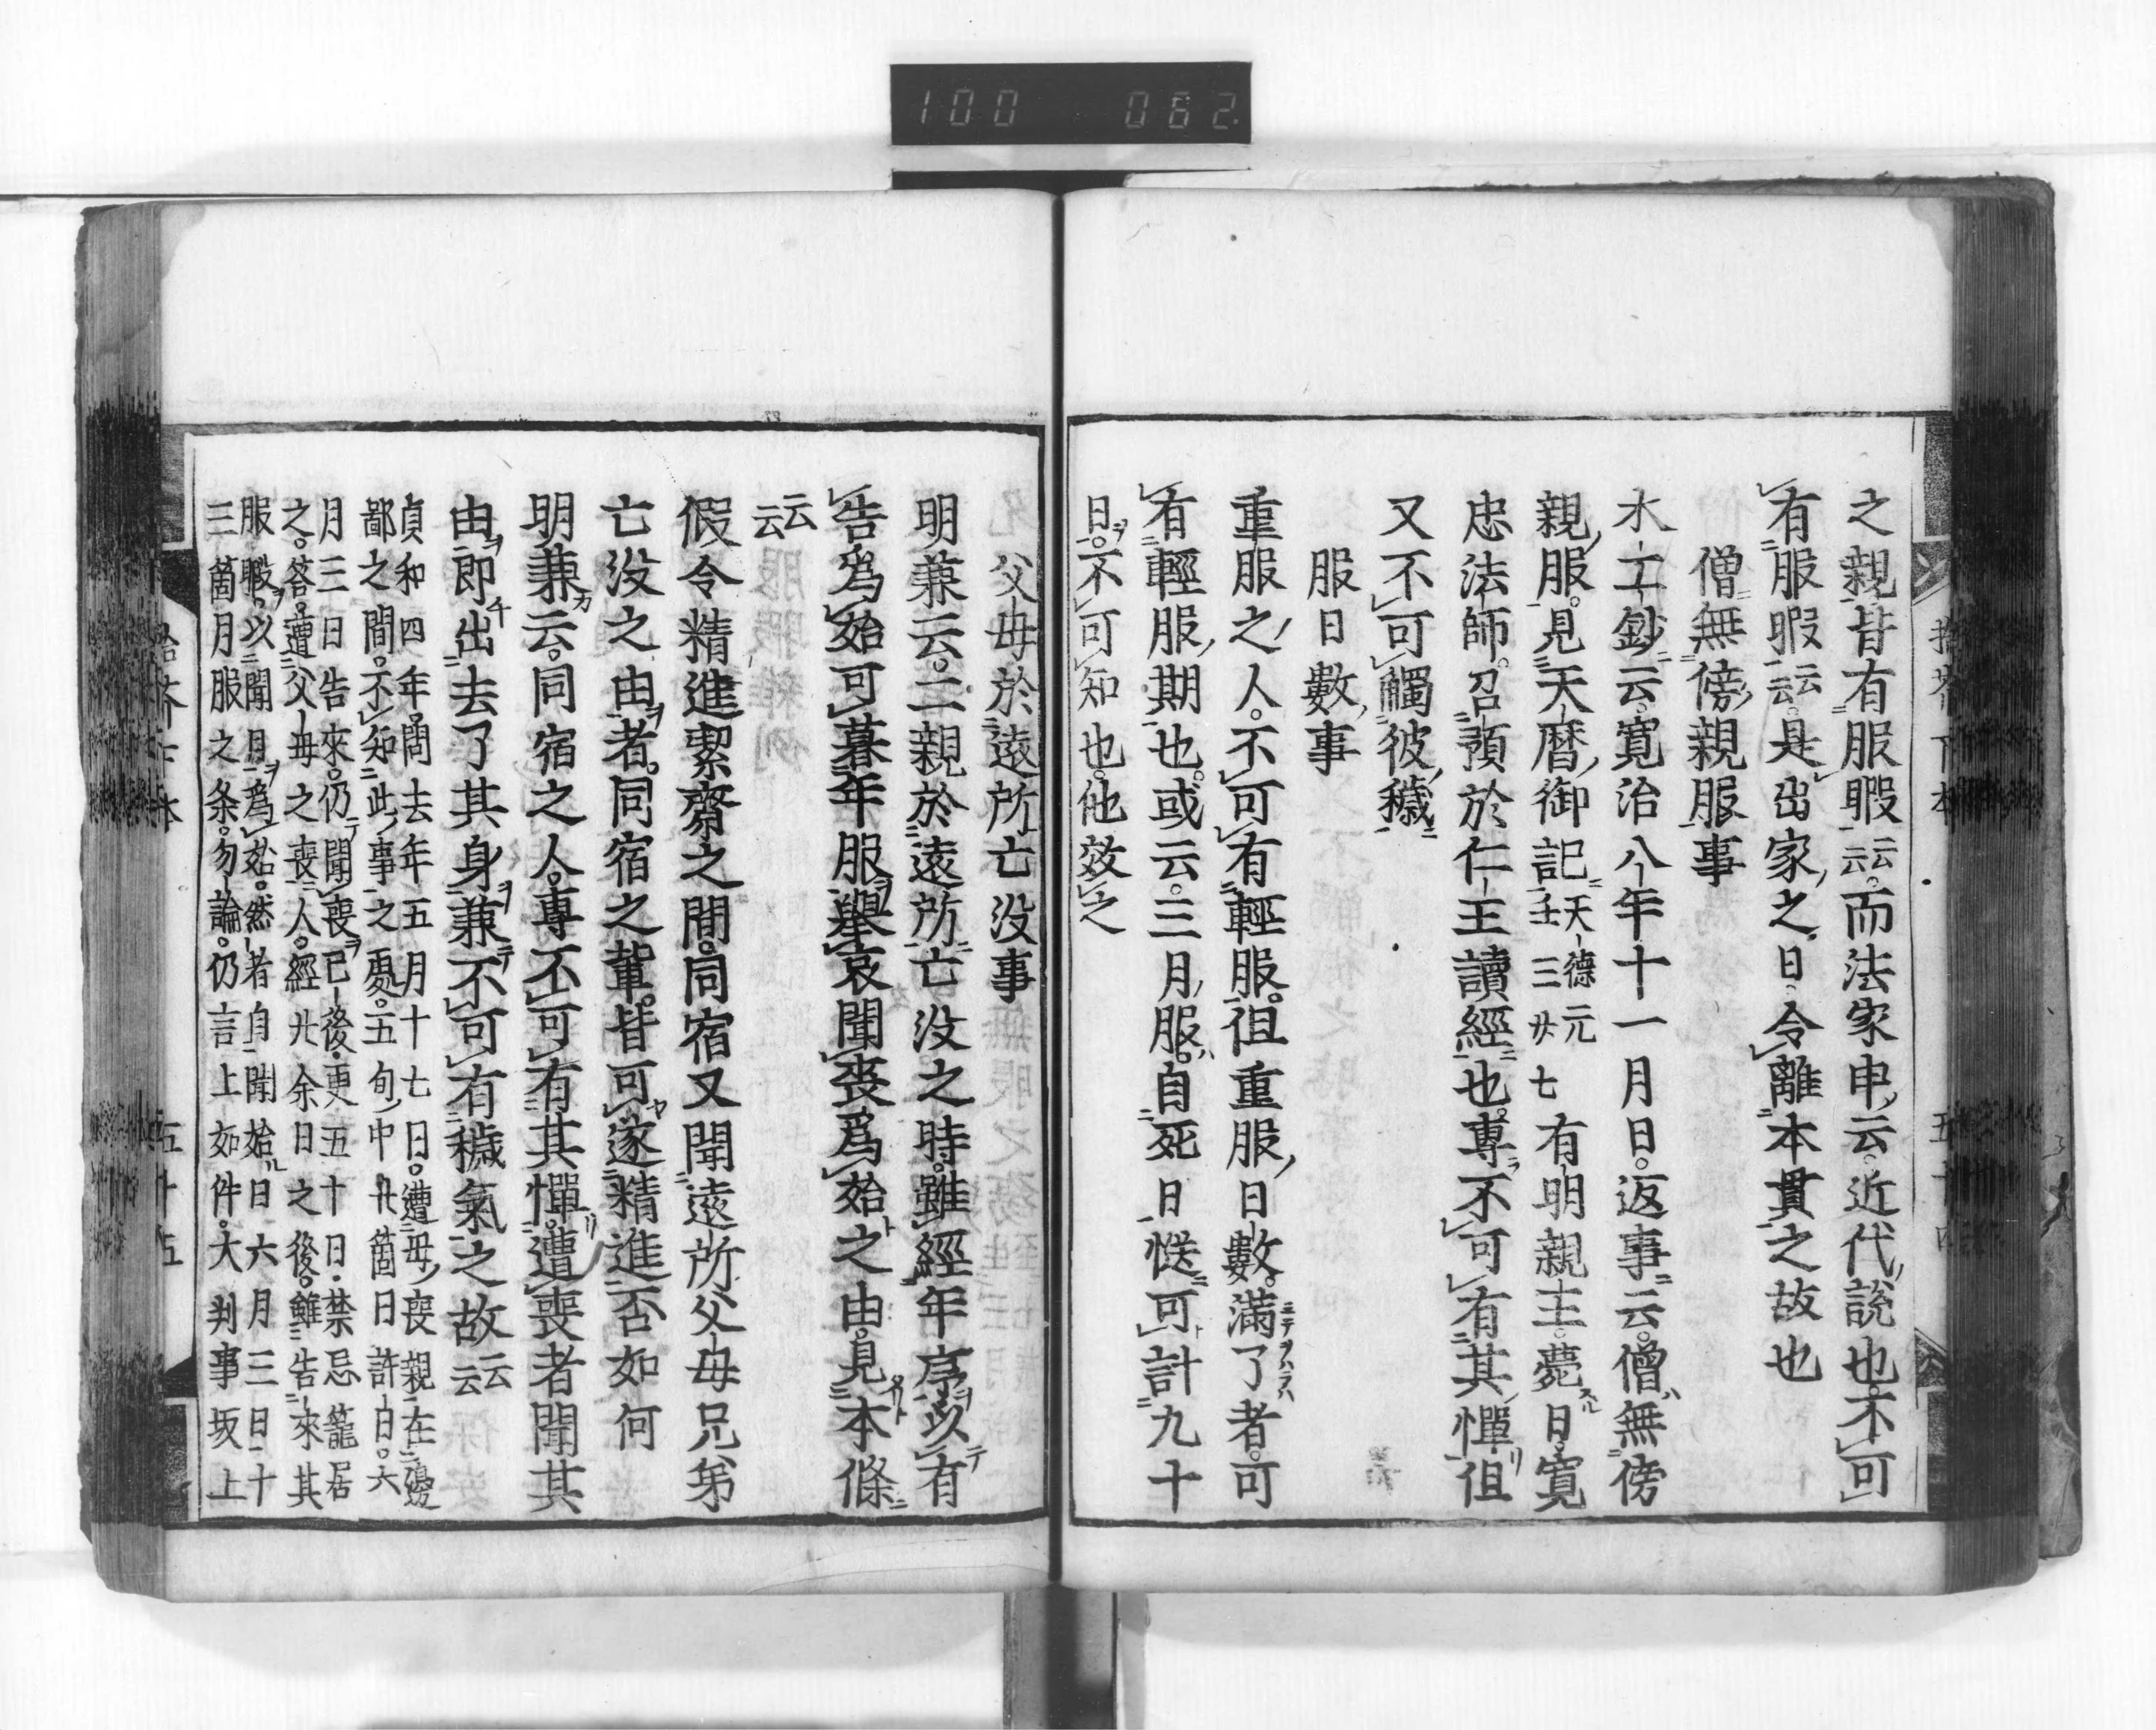 100 062
之親昔有服暇云云而法家申云近代説也不可
有服暇云云是出家之日令離本貫之故也
僧無傍親服事
木工鈔云寛治八年十一月日返事云僧無傍
親服見天暦御記天德元壬三廿七有明親王薨日寛
忠法師召預於仁王讀經也專不可有其憚但
又不可觸彼穢
服日數事
重服之人不可有輕服但重服日數滿了者可
有輕服期也或云三月服自死日迯可計九十
日不可知也他效之
父母於遠所亡没事
明兼云二親於遠所亡没之時雖經年序以有
告爲始可暮年服擧哀聞喪爲始之由見本條
云云
假令精進絜齋之間同宿又聞遠所父母兄弟
亡没之由者同宿之輩皆可遂精進否如何
明兼云同宿之人專不可有其憚遭喪者聞其
由即出去了其身兼不可有穢氣之故云云
貞和四年問去年五月十七日遭母喪親在邊
鄙之間不知此事之處五旬中廿箇日許日六
月三日告來仍聞喪已後更五十日禁忌籠居
之答遭父母之喪人經廿余日之後雖告來其
服暇以聞日爲始然者自聞始日六月三日十
三箇月服之条勿論仍言上如件大判事坂上